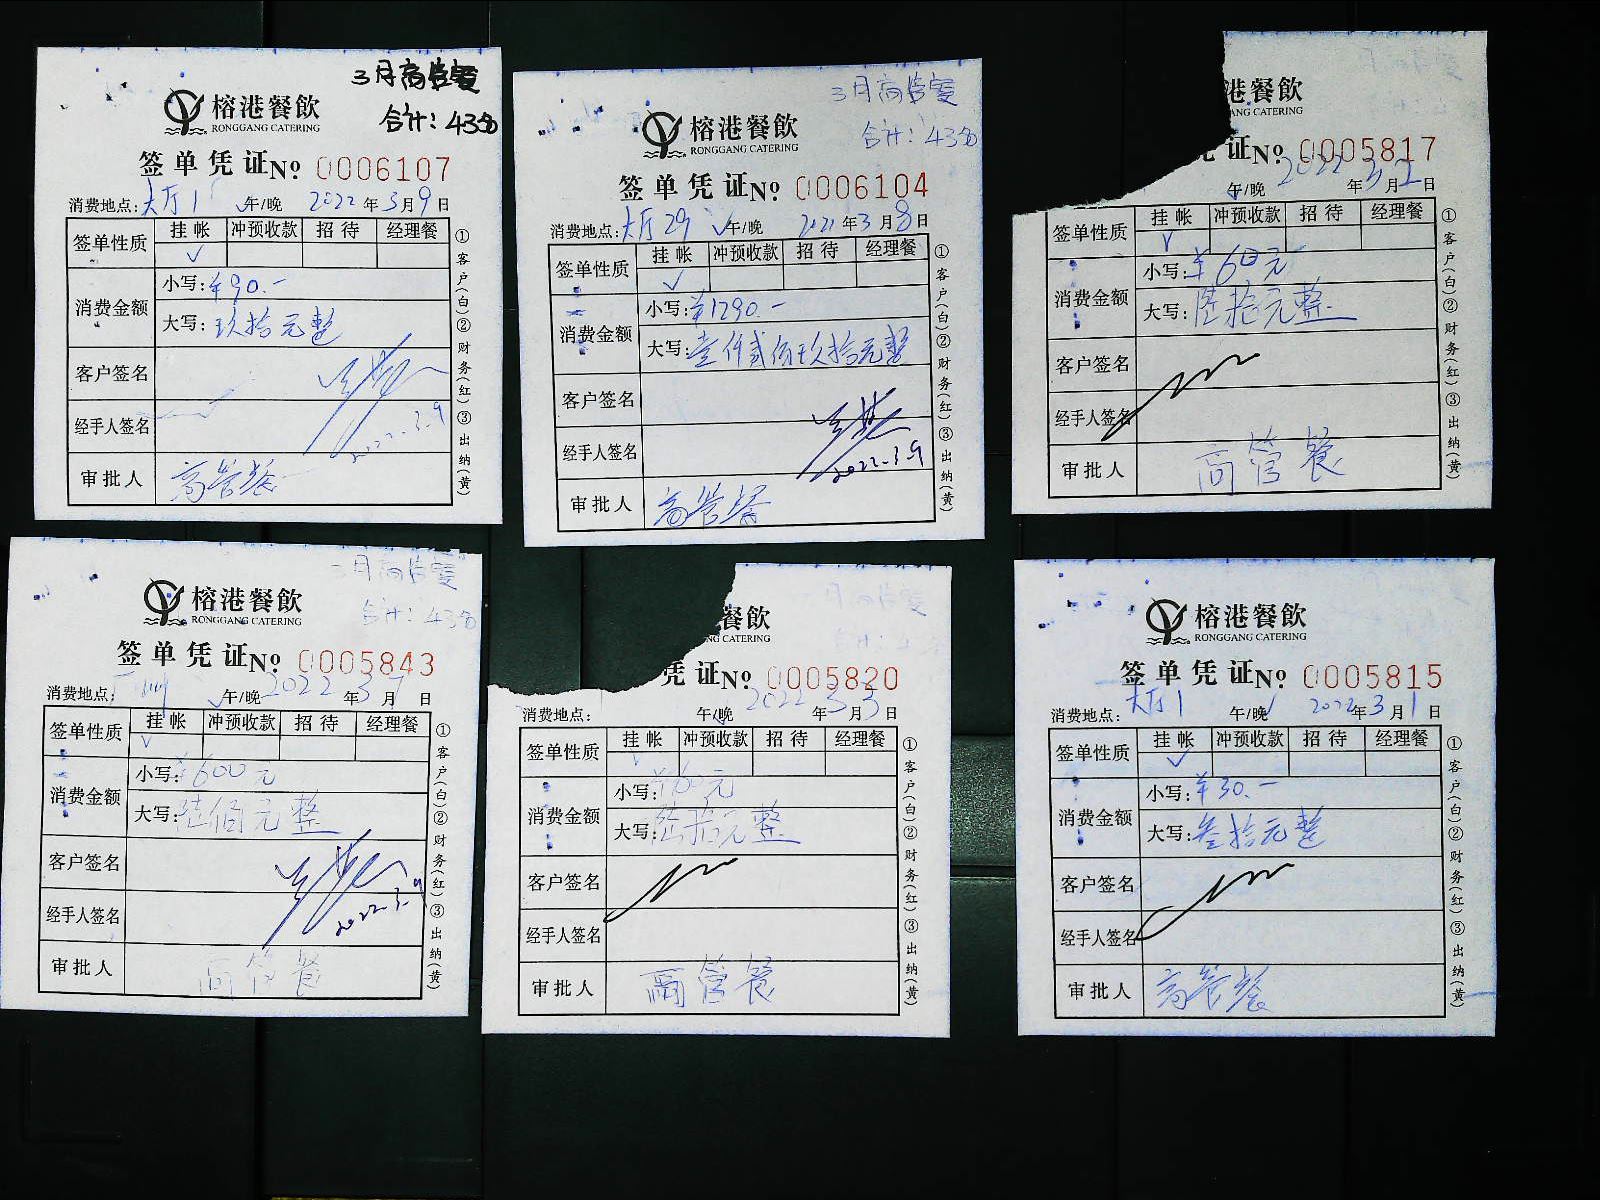 3月高管餐
合计：4350
榕港餐飲
RONGGANG CATERING
签单凭证 No 0006107
消费地点：大厅1 午/晚 2022年3月9日
签单性质 挂帐 冲预收款 招待 经理餐
√
消费金额 小写：¥90.-
大写：玖拾元整
客户签名
经手人签名
2022.3.9
审批人 高管餐
①客户(白)②财务(红)③出纳(黄)
3月高管餐
合计：4350
榕港餐飲
RONGGANG CATERING
签单凭证 No 0006104
消费地点：大厅29 √午/晚 2022年3月8日
签单性质 挂帐 冲预收款 招待 经理餐
√
消费金额 小写：¥1290.-
大写：壹仟贰佰玖拾元整
客户签名
经手人签名
2022.3.9
审批人 高管餐
①客户(白)②财务(红)③出纳(黄)
港餐飲
NG CATERING
证 No 0005817
午/晚 2022年3月2日
签单性质 挂帐 冲预收款 招待 经理餐
√
消费金额 小写：¥60元
大写：陆拾元整
客户签名
经手人签名
审批人 高管餐
①客户(白)②财务(红)③出纳(黄)
3月高管餐
合计：4350
榕港餐飲
RONGGANG CATERING
签单凭证 No 0005843
消费地点： √午/晚 2022年3月7日
签单性质 挂帐 冲预收款 招待 经理餐
√
消费金额 小写：¥600元
大写：陆佰元整
客户签名
经手人签名
2022.3.9
审批人 高管餐
①客户(白)②财务(红)③出纳(黄)
月高管餐
餐飲
NG CATERING
凭证 No 0005820
消费地点： 午/晚 2022年3月3日
签单性质 挂帐 冲预收款 招待 经理餐
√
消费金额 小写：¥60元
大写：陆拾元整
客户签名
经手人签名
审批人 高管餐
①客户(白)②财务(红)③出纳(黄)
榕港餐飲
RONGGANG CATERING
签单凭证 No 0005815
消费地点：大厅1 午/晚√ 2022年3月1日
签单性质 挂帐 冲预收款 招待 经理餐
√
消费金额 小写：¥30.-
大写：叁拾元整
客户签名
经手人签名
审批人 高管餐
①客户(白)②财务(红)③出纳(黄)